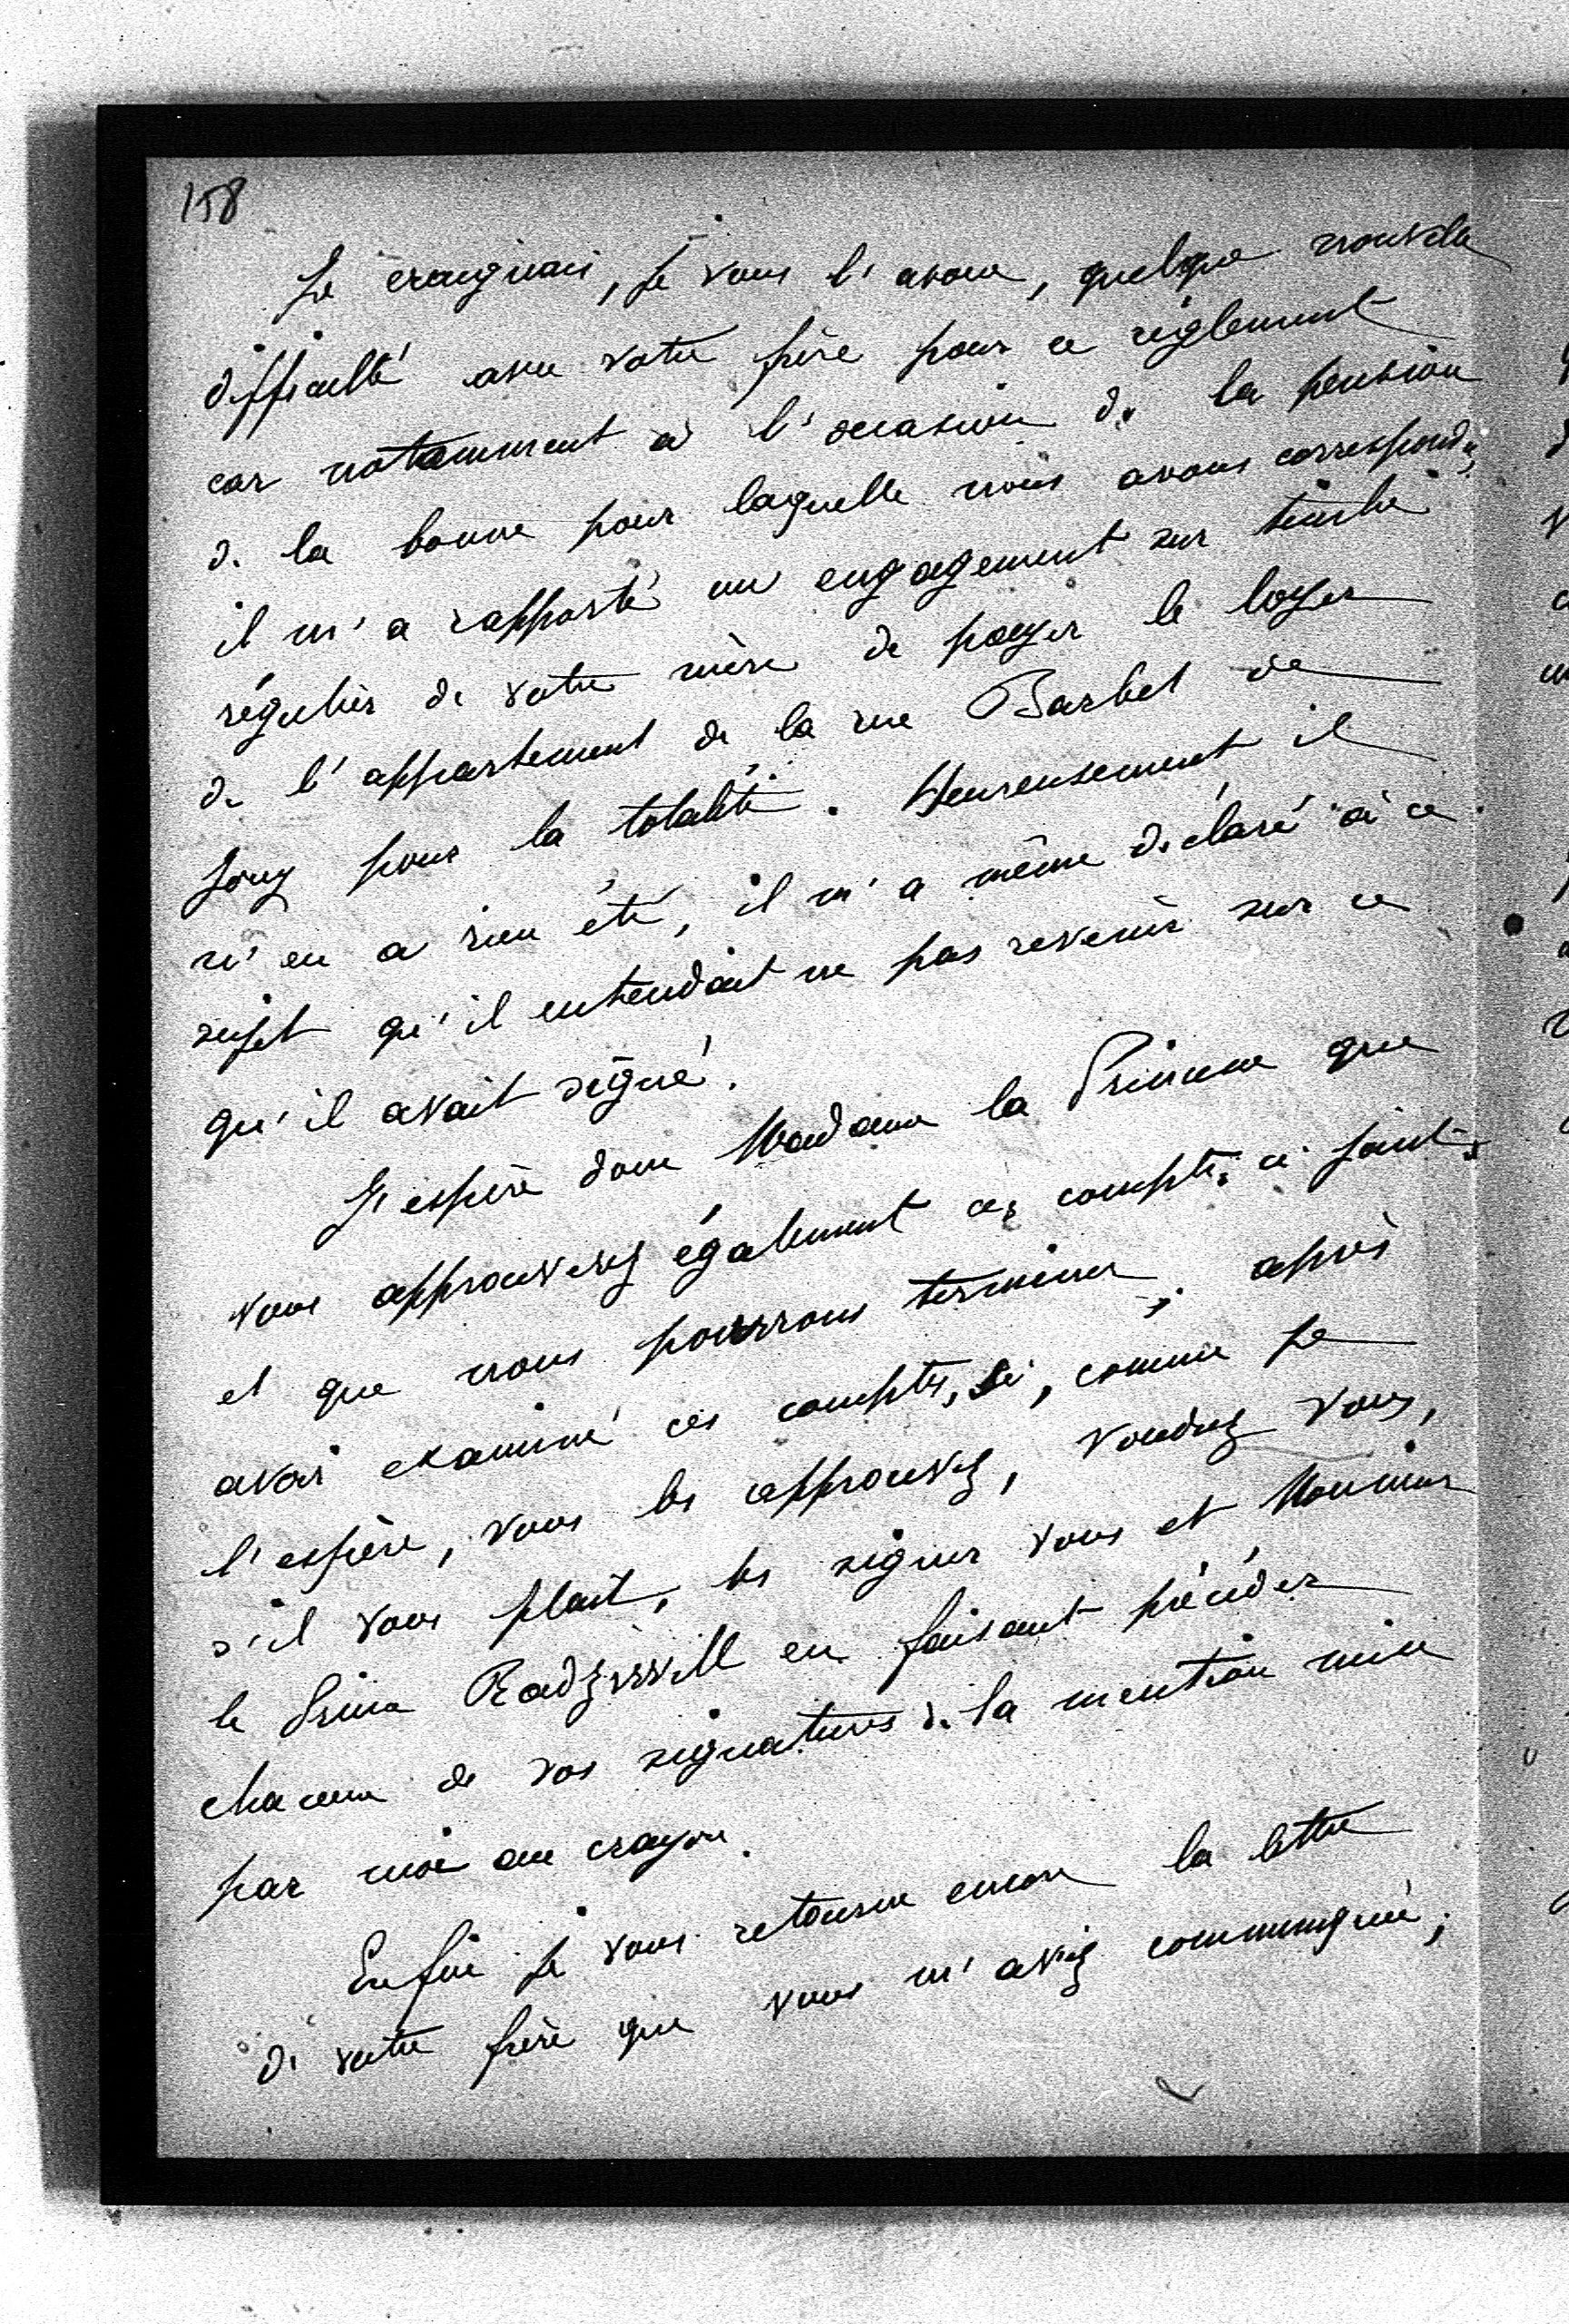 158
Je craignais, je vous l'avoue, quelque nouvelle
difficulté avec votre frère pour ce règlement
car notamment à l'occasion de la pension
de la bonne pour laquelle nous avons correspondu,
il m'a rapporté un engagement sur timbre
régulier de votre mère de payer le loyer
de l'appartement de la rue Barbet de
Jouy pour la totalité. Heureusement il
n'en a rien été, il m'a même déclaré à ce
sujet qu'il entendait ne pas revenir sur ce
qu'il avait signé.
J'espère donc Madame la Princesse que
vous approuverez également ces comptes ci joints
et que nous pourrons terminer; après
avoir examiné ces comptes, si, comme je
l'espère, vous les approuvez, voudrez vous,
s'il vous plait, les signer vous et Monsieur
le Prince Radziwill en faisant précéder
chacune de vos signatures de la mention mise
par moi au crayon.
Enfin je vous retourne encore la lettre
de votre frère que vous m'aviez communiquée;